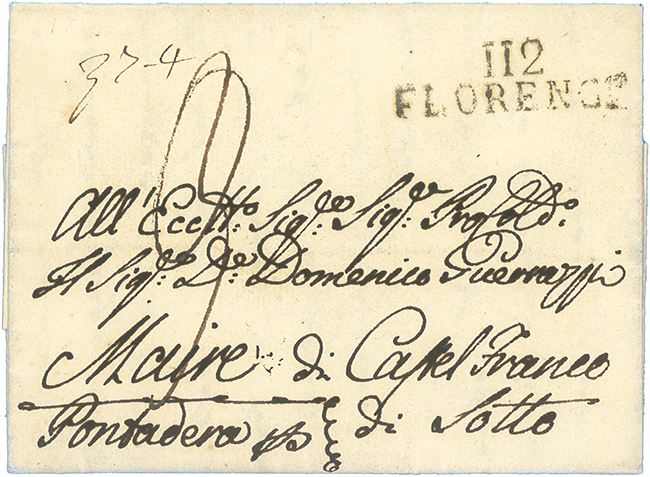 37-4
112
FLORENCE
9
All' Eccllo: Sigre: Sigre: Prof Coldo:
Il Sigre: Dre: Domenico Guerrazzi
Maire di Castel Franco
Pontadera di Sotto